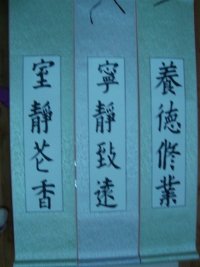 養德修業
寧靜致遠
室靜花香